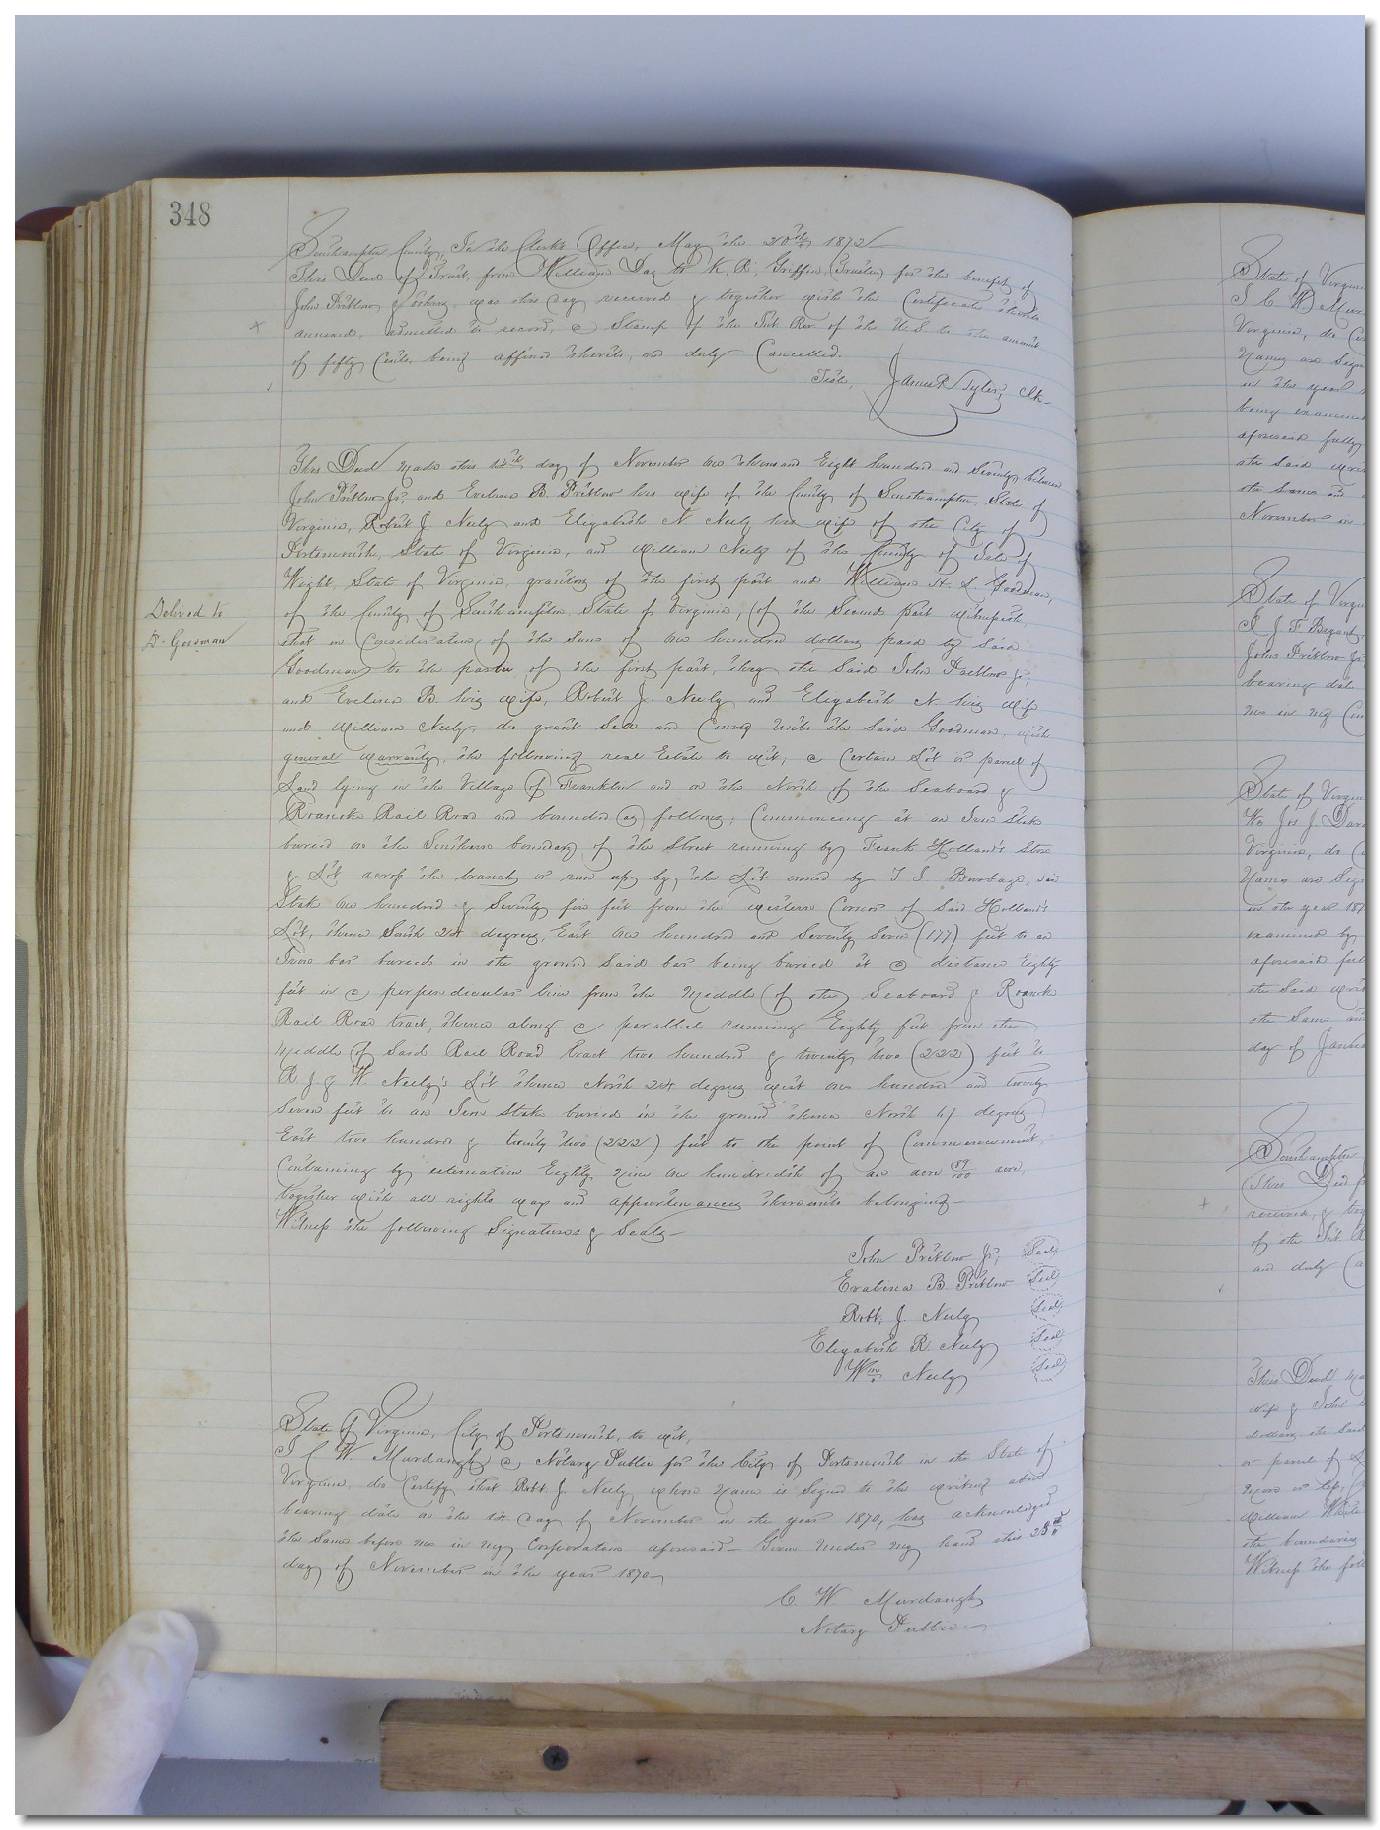 348
Southampton County, In the Clerks Office, May the 20th 1872
This Deed of Trust, from William Day to K. R. Griffin (Trustee) for the benefit of
John Pretlow & was this day received & together with the Certificate thereto
annexed, admitted to record, a Stamp of the Int. Rev. of the U.S. to the amount
of fifty Cents being affixed thereto, and duly Cancelled.
Teste, James R Tyler, Clk
This Deed made this day of November One thousand Eight hundred and Seventy between
John Pretlow Jr, and Evelina B. Pretlow his wife of the County of Southampton, State of
Virginia, Robert J Neely and Elizabeth N. Neely his wife of the City of
Portsmouth, State of Virginia, and William Neely of the County of Isle of
Wight State of Virginia, grantors of the first part and William H. L. Goodman,
of the County of Southampton State of Virginia, (of the Second part witnesseth,
that in Consideration of the Sum of One hundred dollars paid by said
Goodman to the parties of the first part, they the Said John Pretlow Jr,
and Evelina B. his wife, Robert J. Neely and Elizabeth N. his wife
and William Neely, do grant Sell and Convey unto the Said Goodman, with
general warranty, the following real Estate to wit, a Certain Lot or parcel of
Land lying in the Village of Franklin and on the North of the Seaboard &
Roanoke Rail Road and bounded as follows; Commencing at an Iron Stake
buried on the Southern boundary of the Street running by Frank Holland's Store
& Lot across the branch or run by the Lot owned by T S Burbage, said
Stake one hundred & Seventy five feet from the western Corner of Said Holland's
Lot, thence South 24 degrees East One hundred and Seventy Seven (177) feet to an
Iron bar buried in the ground Said bar being buried at a distance Eighty
feet in a perpendicular line from the Middle (of the) Seaboard & Roanoke
Rail Road tract, thence along a parallel running Eighty feet from the
Middle of Said Rail Road tract two hundred & twenty two (222) feet to
R J & W. Neely's Lot thence North 24 degrees west one hundred and twenty
Seven feet to an Iron Stake buried in the ground thence North degrees
East two hundred & twenty two (222) feet to the point of Commencement,
Containing by estimation Eighty Nine one hundredth of an acre 89/100 acre,
together with all rights ways and appurtenances thereunto belonging—
Witness the following Signatures & Seals—
John Pretlow Jr, Seal
Evalina B. Pretlow Seal
Robt. J. Neely Seal
Elizabeth R. Neely Seal
Wm. Neely Seal
State of Virginia, City of Portsmouth, to wit,
I C W. Murdaugh a Notary Public for the City of Portsmouth in the State of
Virginia, do Certify that Robt. J. Neely whose Name is Signed to the writing above
bearing date on the day of November in the year 1870, has acknowledged
the Same before me in my Corporation aforesaid— Given under my hand this 23rd
day of November in the year 1870—
C. W Murdaugh
Notary Public—
Delivered to
Goodman
State of Virginia
I C. W. Mur
Virginia, do Ce
Names are Sign
in the year
being examined
aforesaid fully
the said writ
the Same and
November in
State of Virgin
I J F Bryant
John Pretlow Jr
bearing date
me in my Coun
State of Virgin
We Jos J. Dar
Virginia, do C
Names are Sig
in the year 187
examined by
aforesaid ful
the Said writ
the Same an
day of Janua
Southampton
This Deed f
received, & tog
of the Int R
and duly Ca
This Deed Ma
wife & John
dollars the Said
or parcel of L
More or less,
William White
the boundaries
Witness the foll